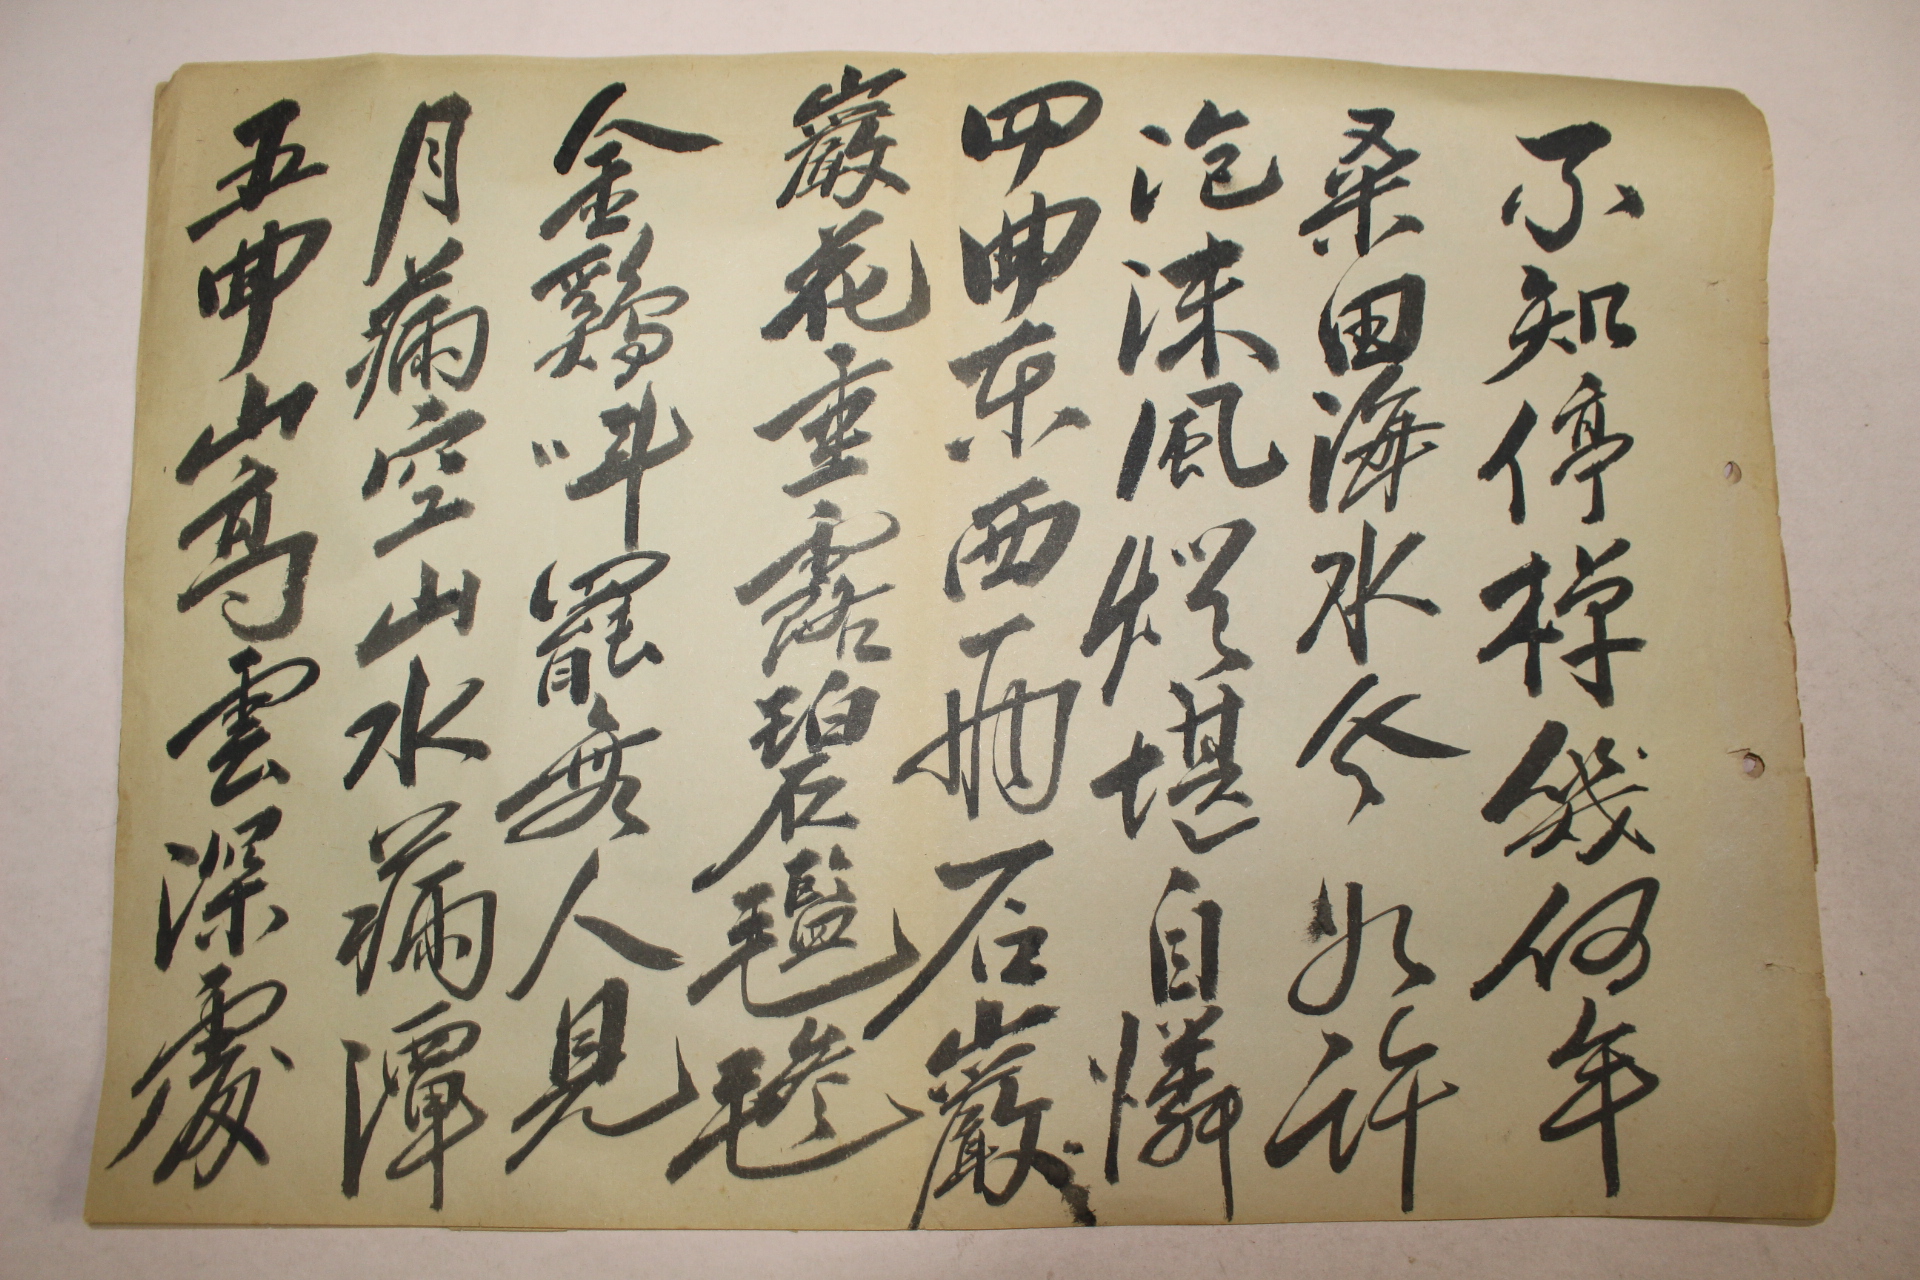 不知停棹幾何年
桑田海水今如許
泡沫風燈堪自憐
四曲東西兩石巖
巖花垂露碧㲯毿
金鷄叫罷無人見
月滿空山水滿潭
五曲山高雲深處